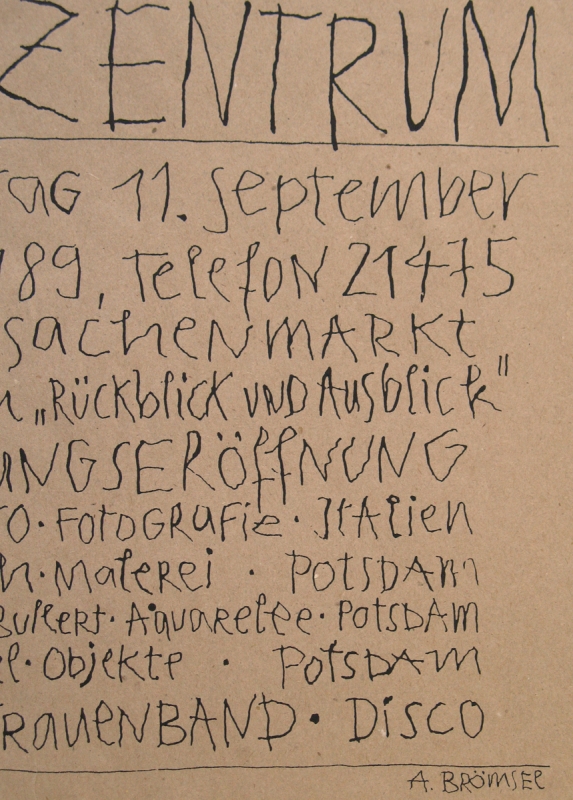 ZENTRUM
TAG 11. September
189, Telefon 21475
SachenMARKt
n „RÜckblick UND Ausblick"
UNGSERÖffNUNG
TO · FOTOGRafie · ItAlien
n · Malerei · POTSDAM
Bullert · Aquarelle · POTSDAM
el · Objekte · POTSDAM
FRAUENBAND · DiSCO
A. BRÖMSEL